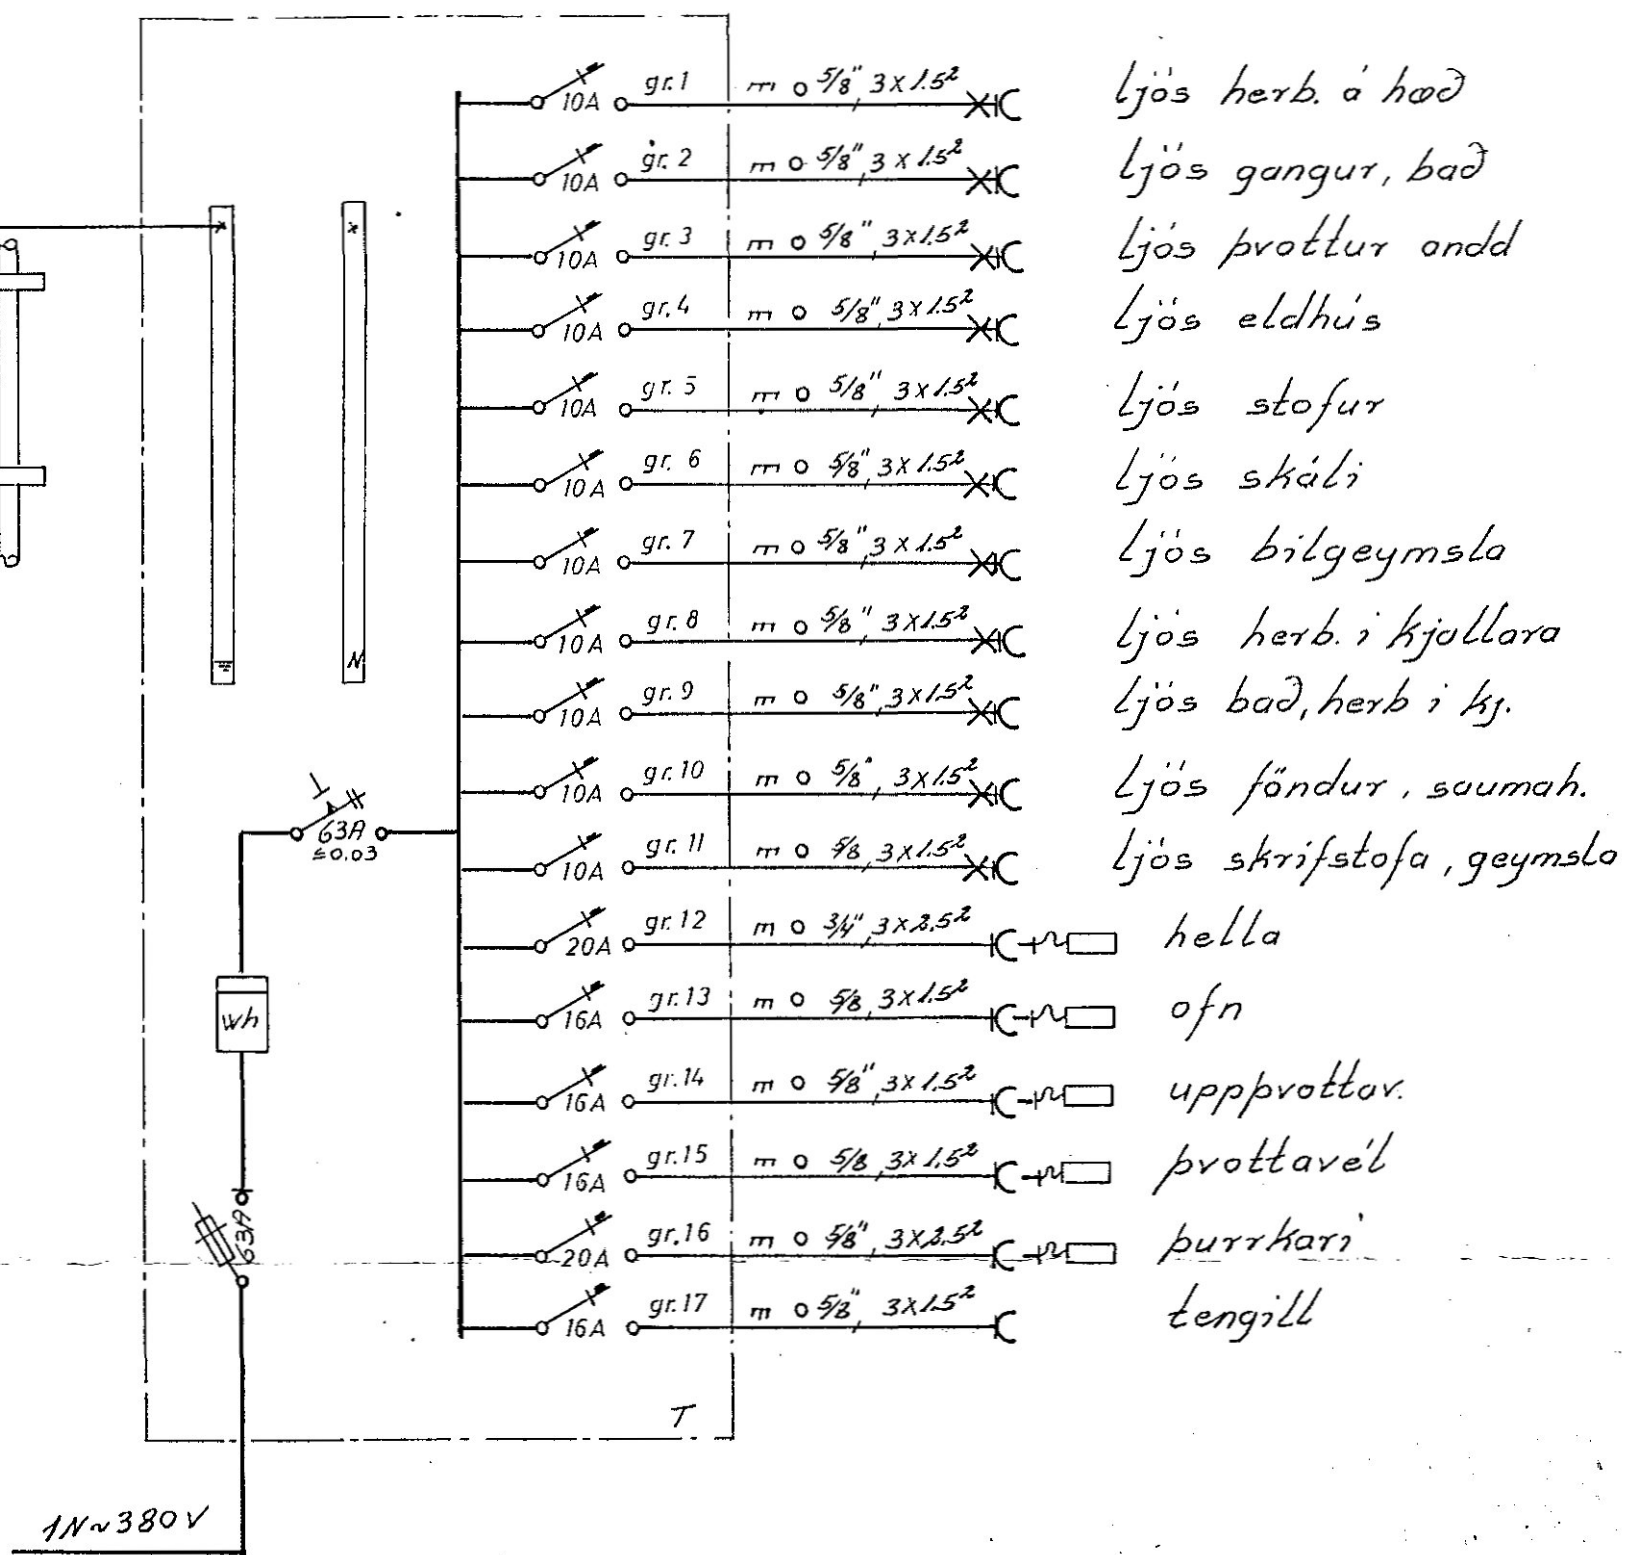 10A gr.1 m o 5/8", 3x1.5² ljós herb. á hæð
10A gr.2 m o 5/8", 3x1.5² ljós gangur, bað
10A gr.3 m o 5/8", 3x1.5² ljós þvottur andd
10A gr.4 m o 5/8", 3x1.5² ljós eldhús
10A gr.5 m o 5/8", 3x1.5² ljós stofur
10A gr.6 m o 5/8", 3x1.5² ljós skáli
10A gr.7 m o 5/8", 3x1.5² ljós bilgeymsla
10A gr.8 m o 5/8", 3x1.5² ljós herb. i kjallara
10A gr.9 m o 5/8", 3x1.5² ljós bað, herb i kj.
10A gr.10 m o 5/8", 3x1.5² ljós föndur, saumah.
10A gr.11 m o 5/8, 3x1.5² ljós skrifstofa, geymsla
20A gr.12 m o 3/4", 3x2.5² hella
16A gr.13 m o 5/8, 3x1.5² ofn
16A gr.14 m o 5/8", 3x1.5² uppþvottav.
16A gr.15 m o 5/8, 3x1.5² þvottavél
20A gr.16 m o 5/8", 3x2.5² þurrkari
16A gr.17 m o 5/8", 3x1.5² tengill
N
63A
≤0.03
Wh
63A
T
1N~380V